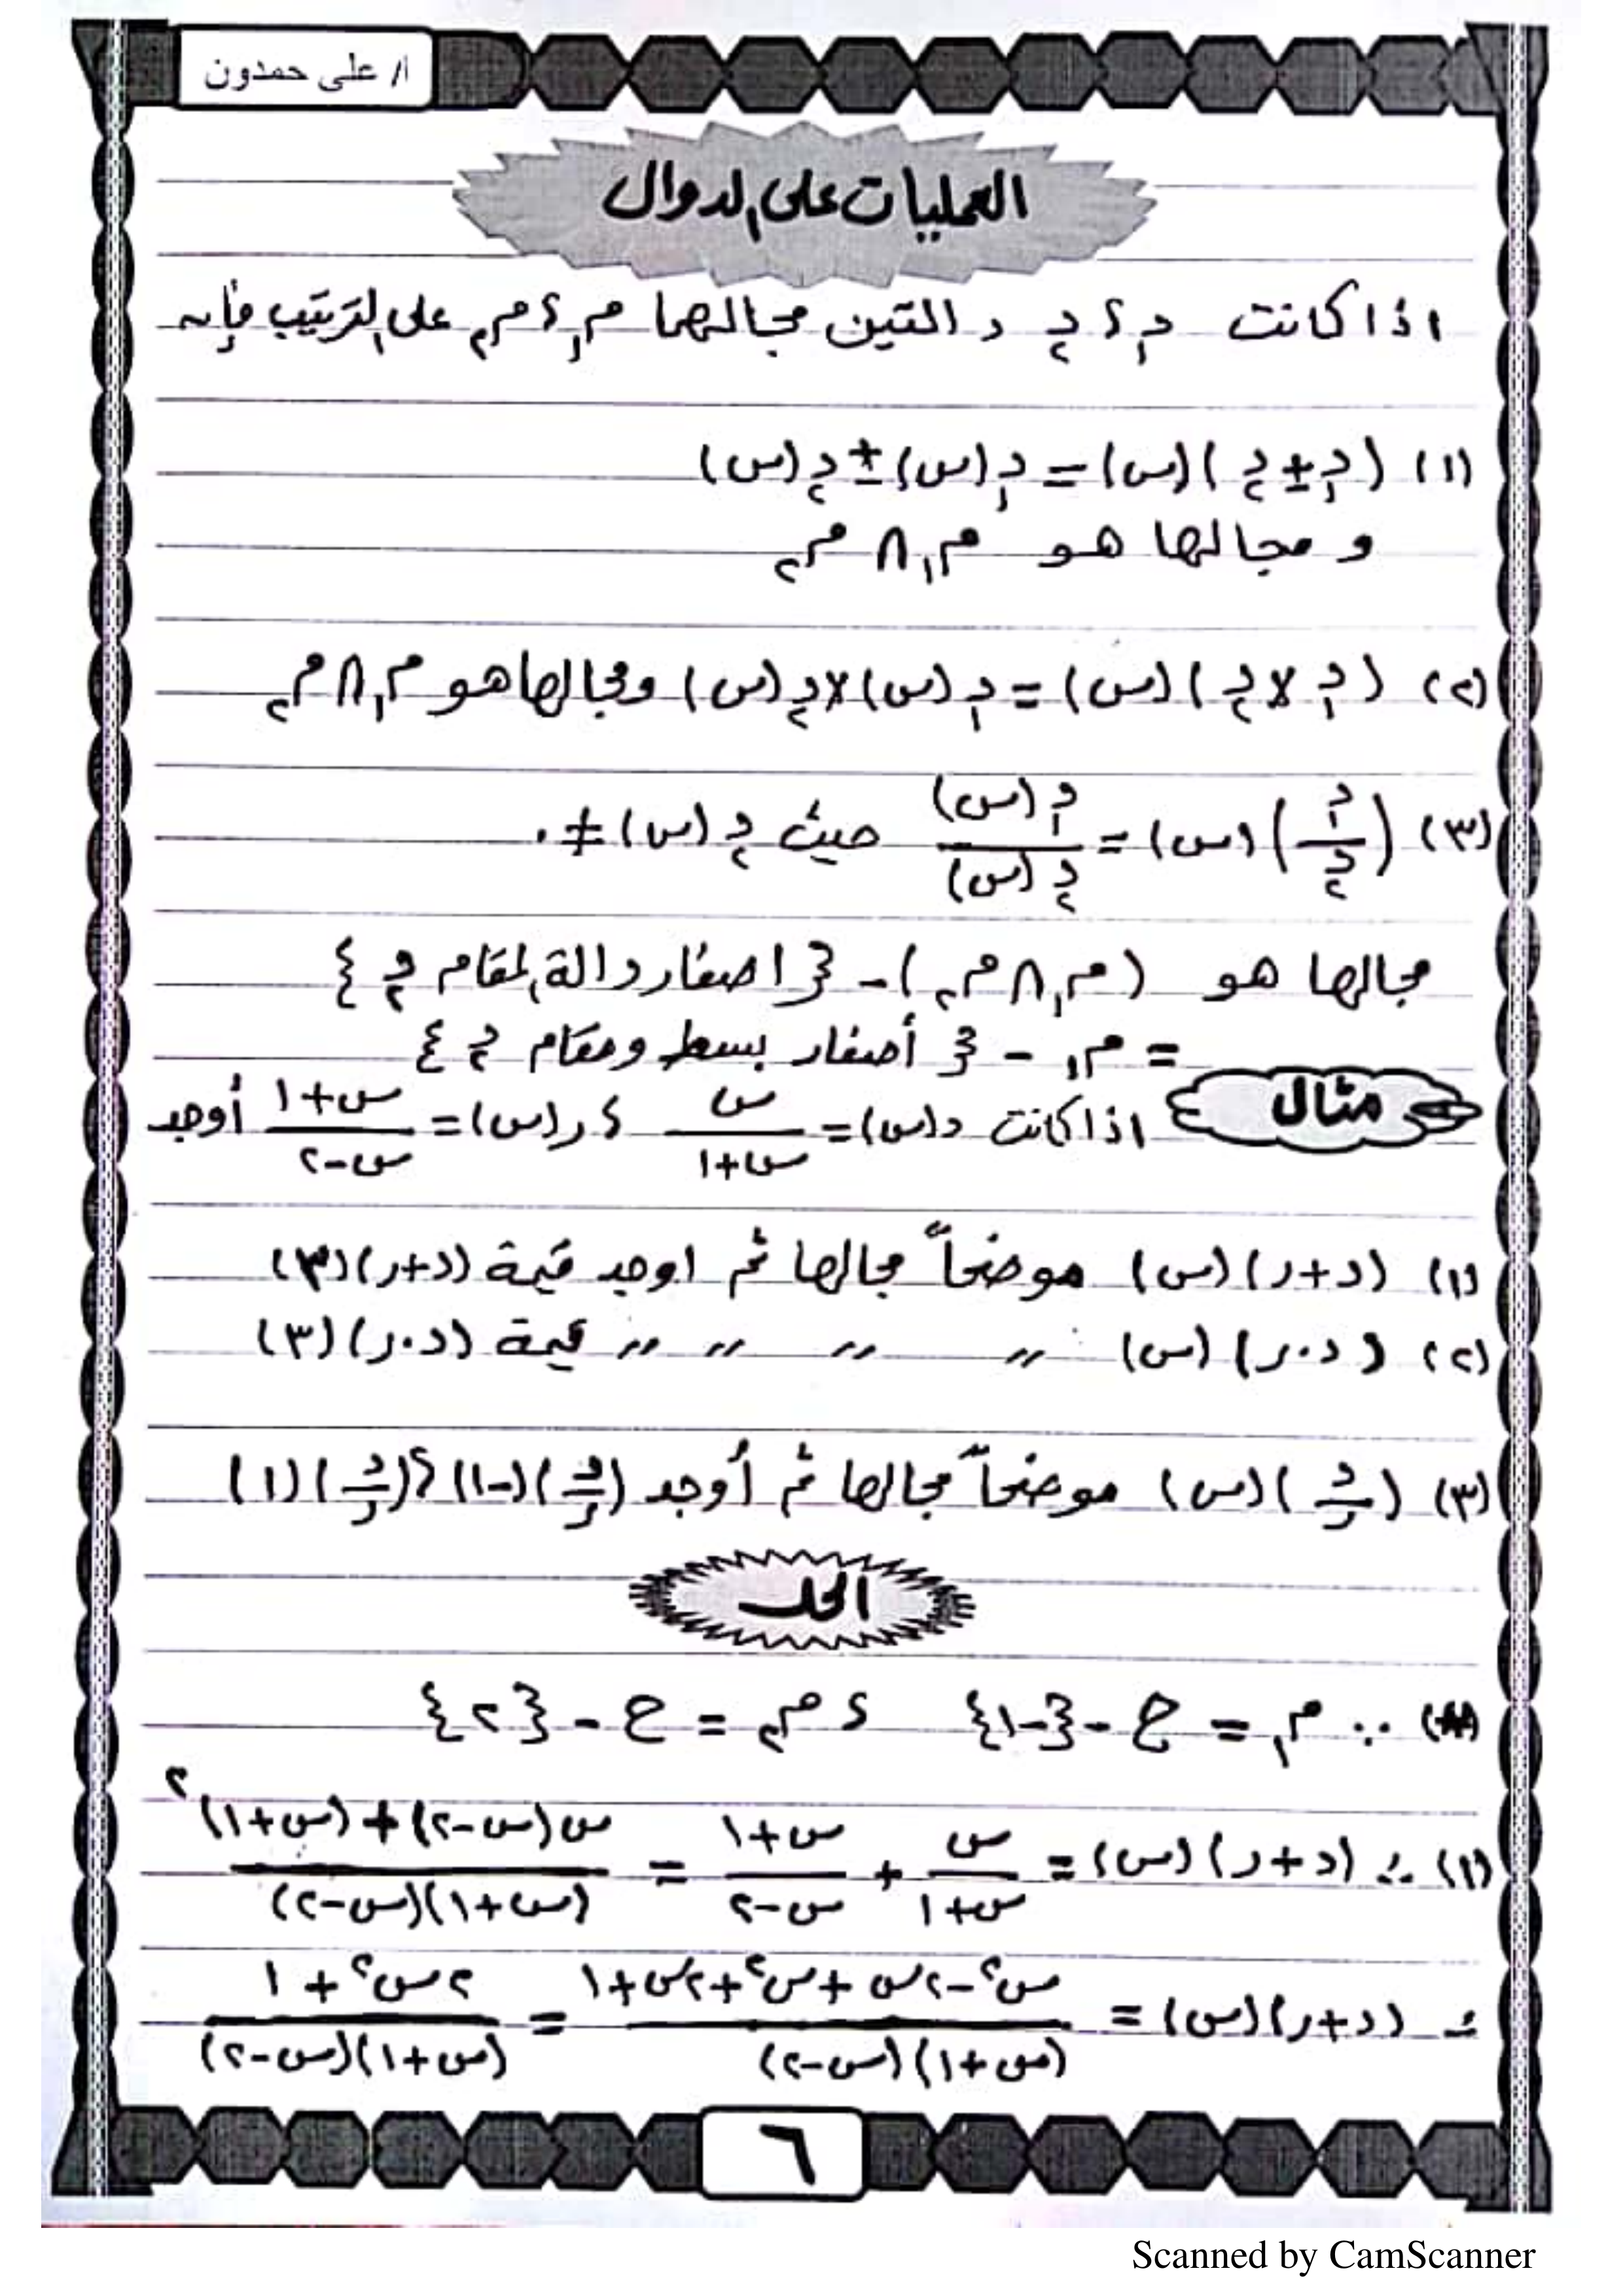 أ/ على حمدون
العمليات على الدوال
اذا كانت د₁ ، د₂ دالتين مجالهما م₁ ، م₂ على الترتيب فإنه
(١) (د₁ ± د₂)(س) = د₁(س) ± د₂(س)
و مجالها هو م₁ ∩ م₂
(٢) (د₁ × د₂)(س) = د₁(س) × د₂(س) ومجالها هو م₁ ∩ م₂
(٣) (د₁/د₂)(س) = د₁(س)/د₂(س) حيث د₂(س) ≠ ٠
مجالها هو (م₁ ∩ م₂) - {اصفار دالة المقام د₂}
= م₁ - {أصفار بسط ومقام د₂}
مثال
اذا كانت د(س) = س/(س+١) ، ر(س) = (س+١)/(س-٢) أوجد
(١) (د+ر)(س) موضحاً مجالها ثم اوجد قيمة (د+ر)(٣)
(٢) (د·ر)(س) 〃 〃 〃 〃 قيمة (د·ر)(٣)
(٣) (د/ر)(س) موضحاً مجالها ثم أوجد (د/ر)(-١) ، (د/ر)(١)
الحل
∵ م₁ = ح - {-١} ، م₂ = ح - {٢}
(١) ∴ (د+ر)(س) = س/(س+١) + (س+١)/(س-٢) = (س(س-٢) + (س+١)²)/((س+١)(س-٢))
∴ (د+ر)(س) = (س²-٢س+س²+٢س+١)/((س+١)(س-٢)) = (٢س²+١)/((س+١)(س-٢))
٦
Scanned by CamScanner